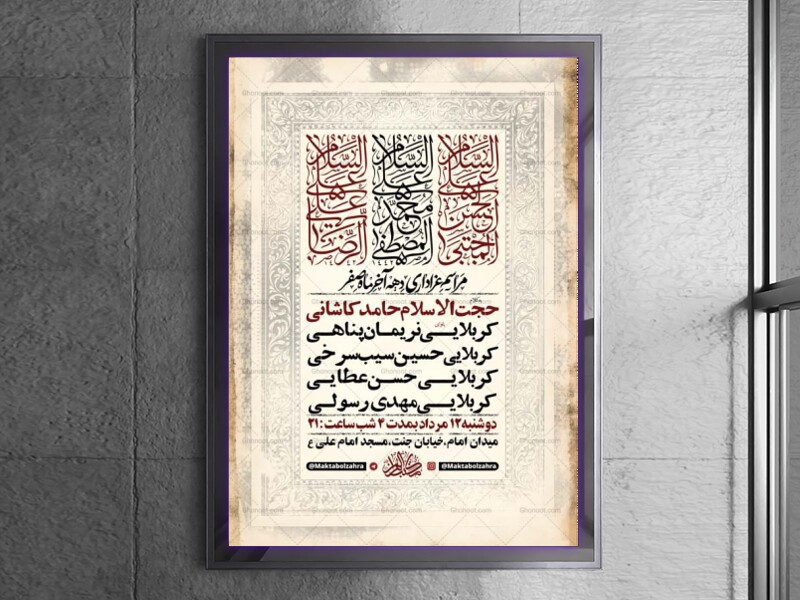 السلام علی الحسن المجتبی
السلام علی محمد المصطفی
السلام علی علی الرضا
مراسم عزاداری دهه آخر ماه صفر
حجت الاسلام حامد کاشانی
کربلایی نریمان پناهی
کربلایی حسین سیب سرخی
کربلایی حسن عطایی
کربلایی مهدی رسولی
دوشنبه ۱۲ مرداد بمدت ۴ شب ساعت: ۲۱
میدان امام، خیابان جنت، مسجد امام علی ع
@Maktabolzahra @Maktabolzahra
Ghonoot.com